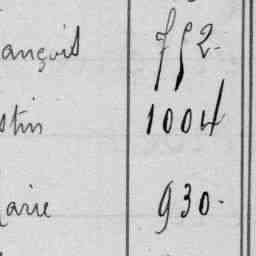 ançois 752.
stin 1004
arie 930.